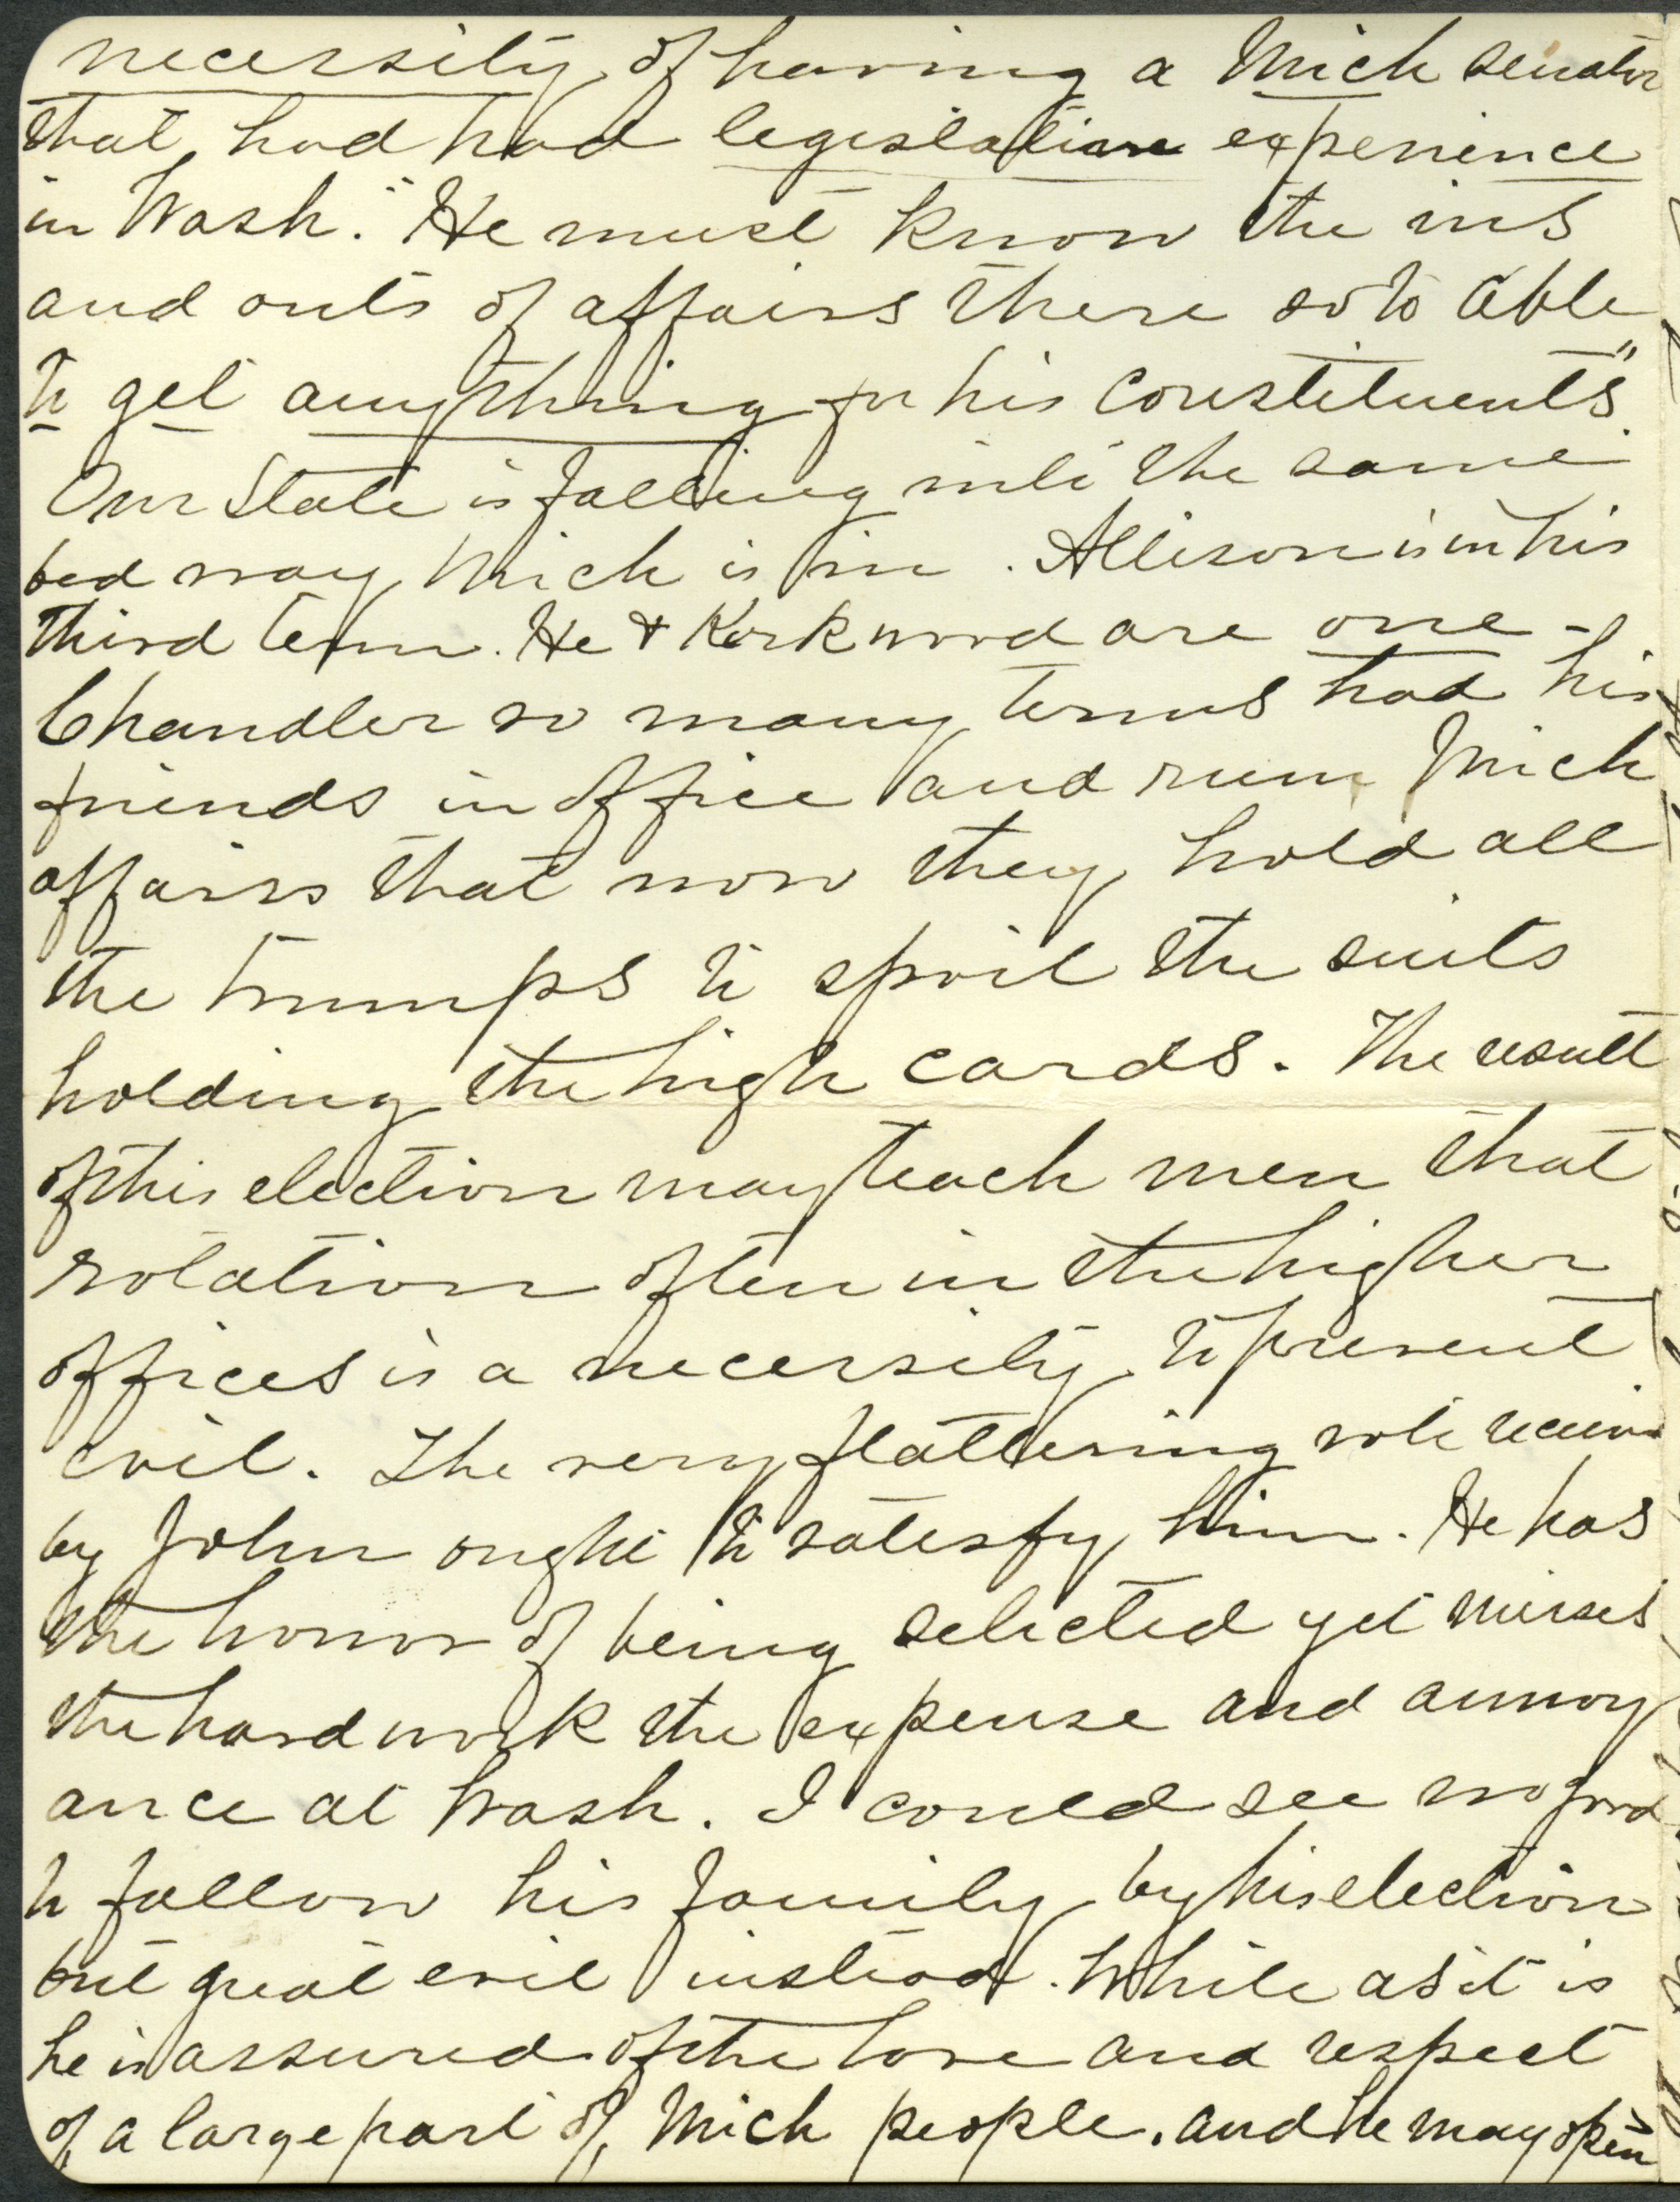 necessity of having a Mich senator
that had had legislative experience
in Wash." He must know the ins
and outs of affairs there so to able
to get anything for his constituents".
Our State is falling into the same
bad way Mich is in. Allison is in his
third term. He & Kirkwood are one -
Chandler so many terms had his
friends in office and run Mich
affairs that now they hold all
the trumps to spoil the suits
holding the high cards. The result
of this election may teach men that
rotation often in the higher
offices is a necessity to prevent
evil. The very flattering vote received
by John ought to satesfy him. He has
the honor of being selected yet misses
the hard work the expense and annoy
ance at Wash. I could see no good
to follow his family by his election
but great evil instead. While as it is
he is assured of the love and respect
of a large part of Mich people. and he may open